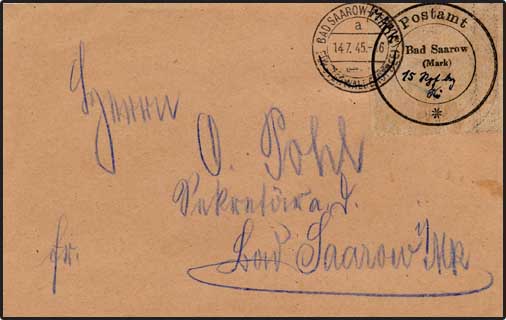 BAD SAAROW
a
14.7.45.-16
Postamt
Bad Saarow
(Mark)
15 Rpf bez
*
Herrn
O. Pohl
Sekretär a. d.
fr.
Bad Saarow/Mk